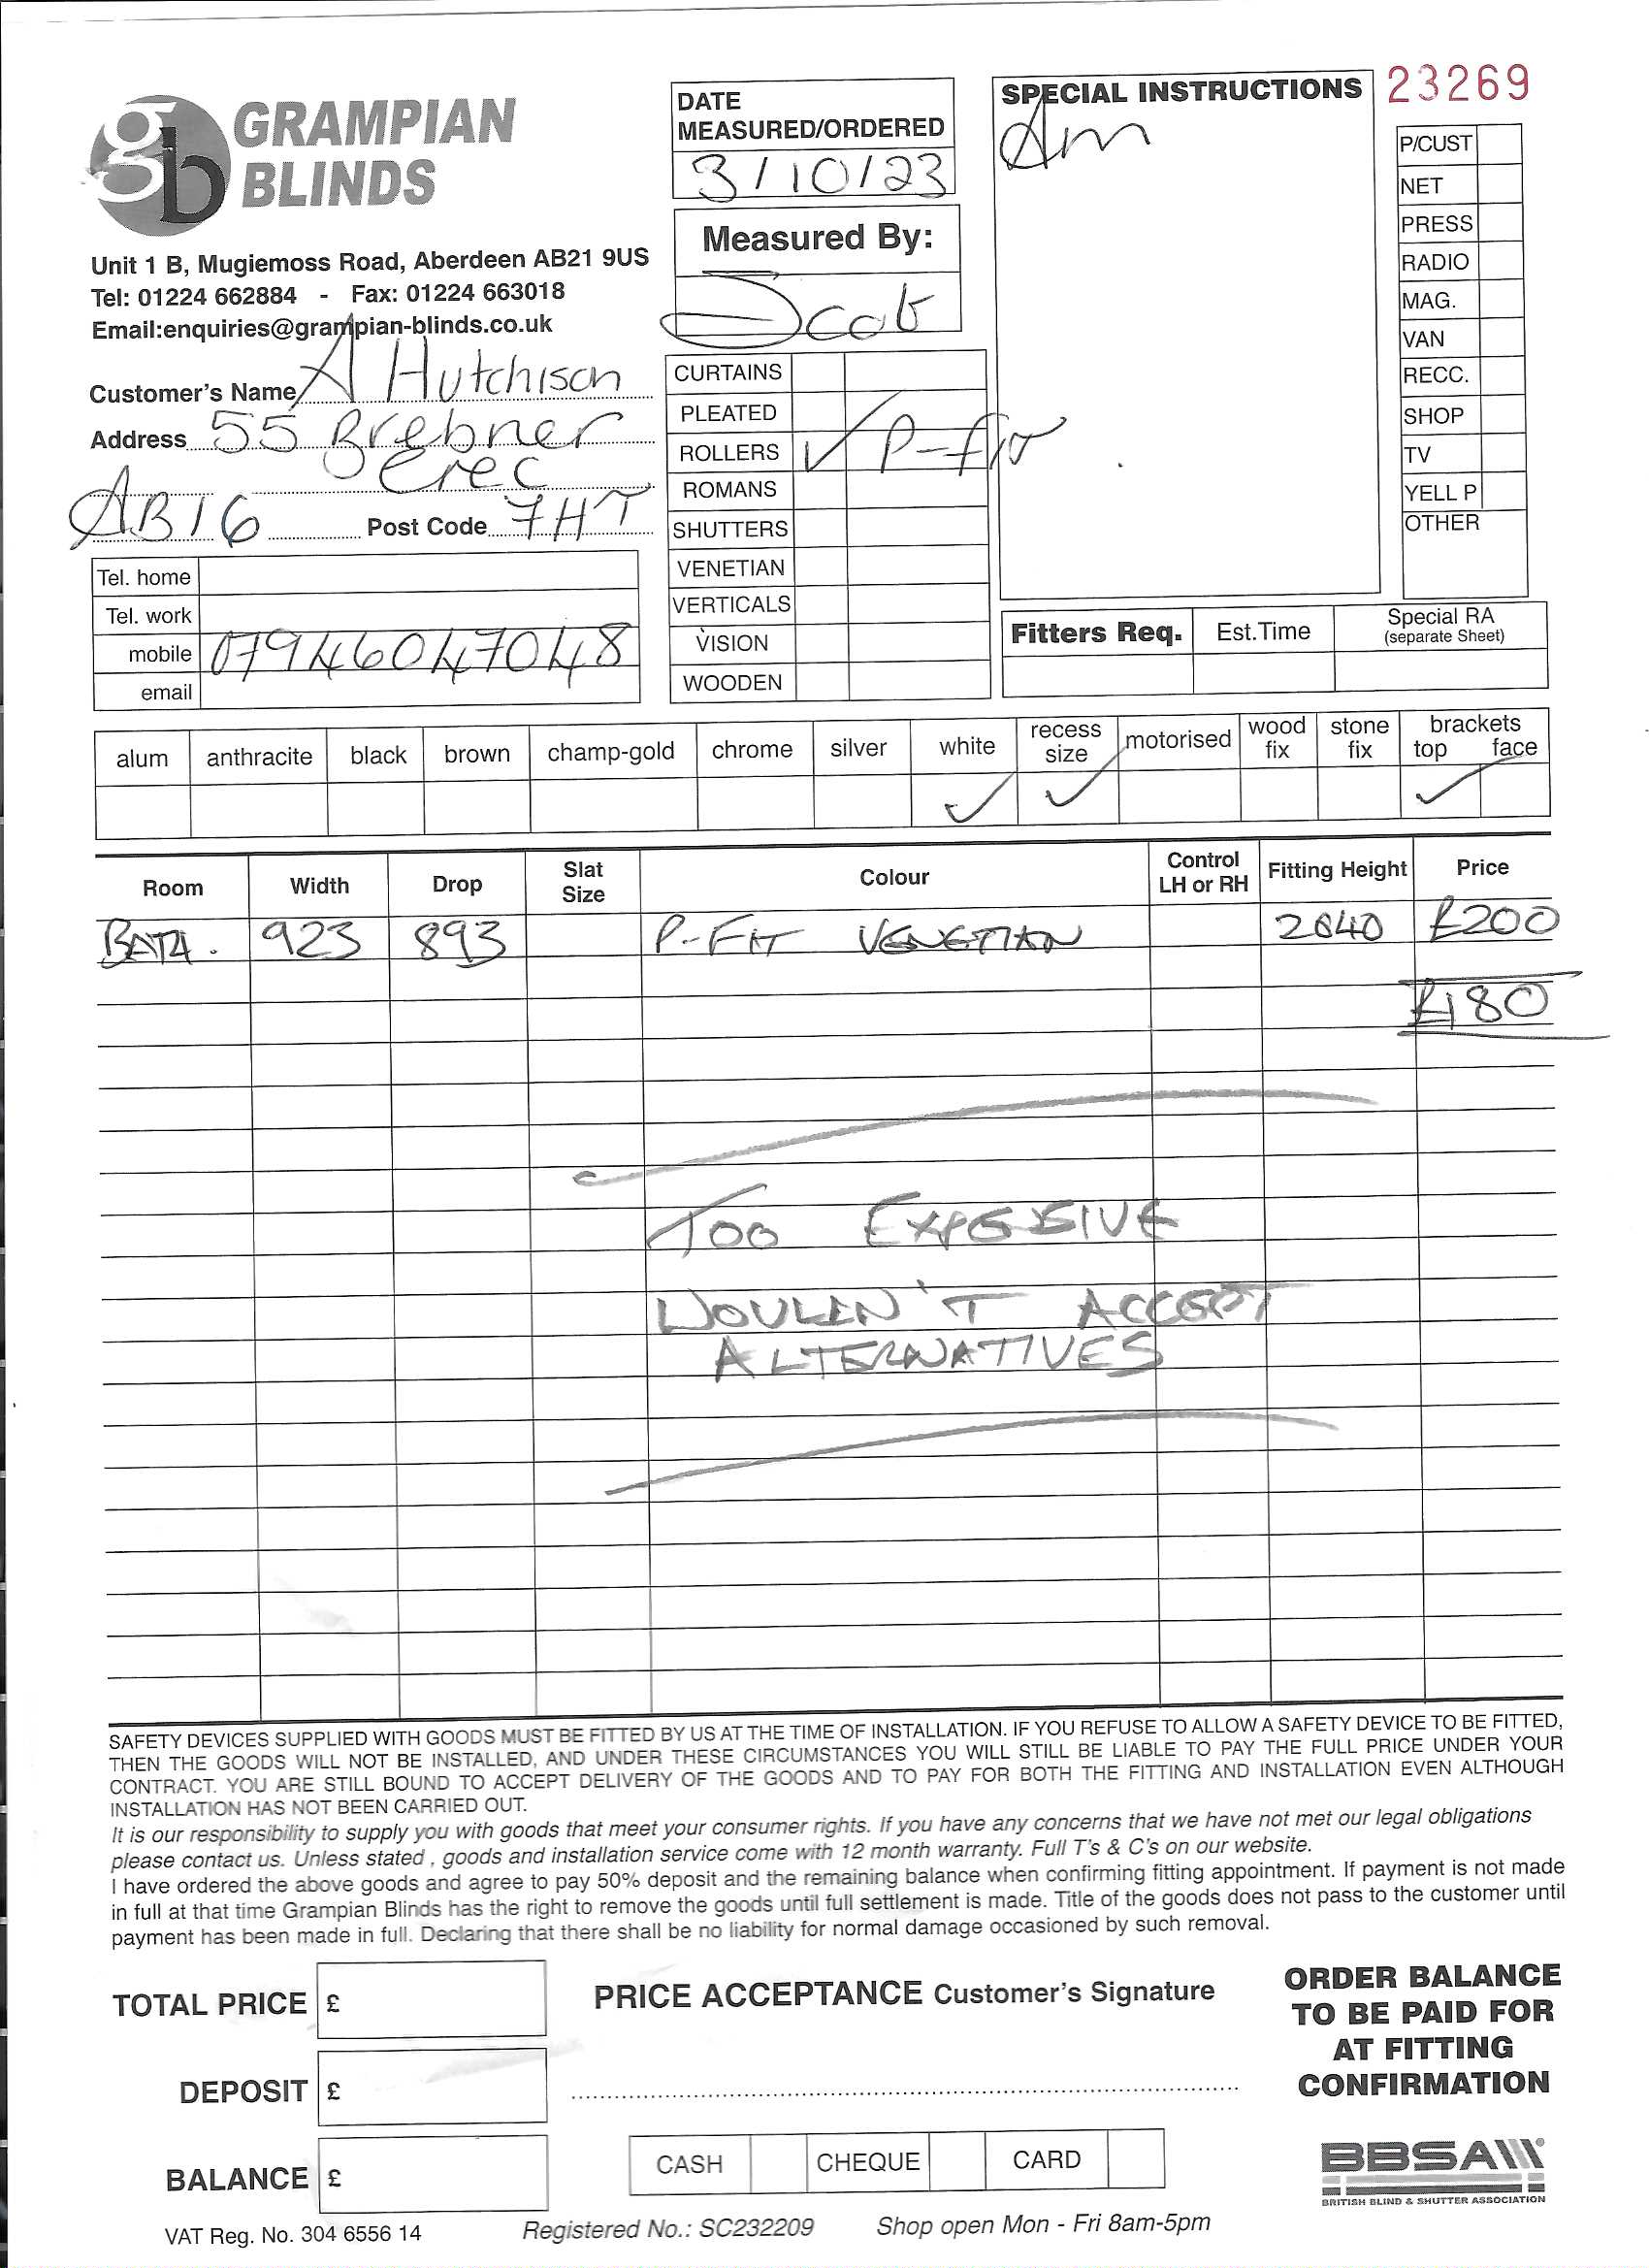 GRAMPIAN
BLINDS
Unit 1 B, Mugiemoss Road, Aberdeen AB21 9US
Tel: 01224 662884 - Fax: 01224 663018
Email:enquiries@grampian-blinds.co.uk
Customer's Name A Hutchison
Address 55 Brebner
Crec
AB16 Post Code 7HT
Tel. home
Tel. work
mobile 07946047048
email
DATE
MEASURED/ORDERED
3/10/23
Measured By:
CURTAINS
PLEATED
ROLLERS ✓ P-fit
ROMANS
SHUTTERS
VENETIAN
VERTICALS
VISION
WOODEN
SPECIAL INSTRUCTIONS
Am
23269
P/CUST
NET
PRESS
RADIO
MAG.
VAN
RECC.
SHOP
TV
YELL P
OTHER
Fitters Req. Est.Time Special RA
(separate Sheet)
alum anthracite black brown champ-gold chrome silver white recess size motorised wood fix stone fix brackets top face
✓ ✓ ✓
Room Width Drop Slat Size Colour Control LH or RH Fitting Height Price
BATH. 923 893 P-FIT VENETIAN 2040 £200
£180
TOO EXPESIVE
WOULDN'T ACCEPT
ALTERNATIVES
SAFETY DEVICES SUPPLIED WITH GOODS MUST BE FITTED BY US AT THE TIME OF INSTALLATION. IF YOU REFUSE TO ALLOW A SAFETY DEVICE TO BE FITTED,
THEN THE GOODS WILL NOT BE INSTALLED, AND UNDER THESE CIRCUMSTANCES YOU WILL STILL BE LIABLE TO PAY THE FULL PRICE UNDER YOUR
CONTRACT. YOU ARE STILL BOUND TO ACCEPT DELIVERY OF THE GOODS AND TO PAY FOR BOTH THE FITTING AND INSTALLATION EVEN ALTHOUGH
INSTALLATION HAS NOT BEEN CARRIED OUT.
It is our responsibility to supply you with goods that meet your consumer rights. If you have any concerns that we have not met our legal obligations
please contact us. Unless stated , goods and installation service come with 12 month warranty. Full T's & C's on our website.
I have ordered the above goods and agree to pay 50% deposit and the remaining balance when confirming fitting appointment. If payment is not made
in full at that time Grampian Blinds has the right to remove the goods until full settlement is made. Title of the goods does not pass to the customer until
payment has been made in full. Declaring that there shall be no liability for normal damage occasioned by such removal.
TOTAL PRICE £
DEPOSIT £
BALANCE £
PRICE ACCEPTANCE Customer's Signature
CASH CHEQUE CARD
ORDER BALANCE
TO BE PAID FOR
AT FITTING
CONFIRMATION
BBSA
BRITISH BLIND & SHUTTER ASSOCIATION
VAT Reg. No. 304 6556 14 Registered No.: SC232209 Shop open Mon - Fri 8am-5pm